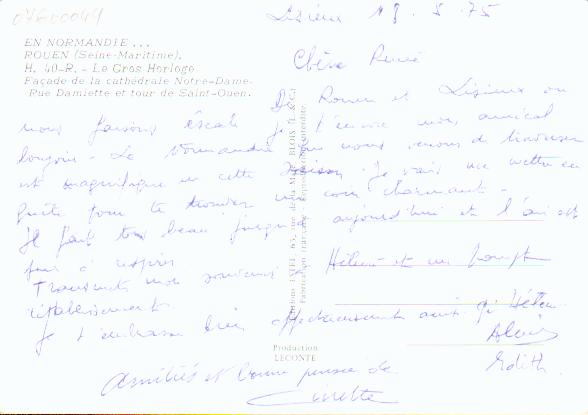 07600049
Lisieux 18.5.75
EN NORMANDIE ...
ROUEN (Seine-Maritime).
H. 40-R. - Le Gros Horloge
Façade de la cathédrale Notre-Dame.
Rue Damiette et tour de Saint-Ouen.
Chère Renée
De Rouen et Lisieux où
nous faisons escale je t'écris mon amical
bonjour. La Normandie que nous venons de traverser
est magnifique en cette saison. Je vais me mettre en
quête pour te trouver un coin charmant.
Il fait très beau jusqu' aujourd'hui et l'air est
à respirer
Transmets mon souvenir à Hélène et un prompt
rétablissement
Je t'embrasse bien affectueusement ainsi qu'Hélène
Edith
Amitiés et bonne pensée de
Ginette
Editions ESTEL, 65, rue de la Mare, BLOIS (L. & C.)
Fabrication française - Reproduction interdite
Production
LECONTE